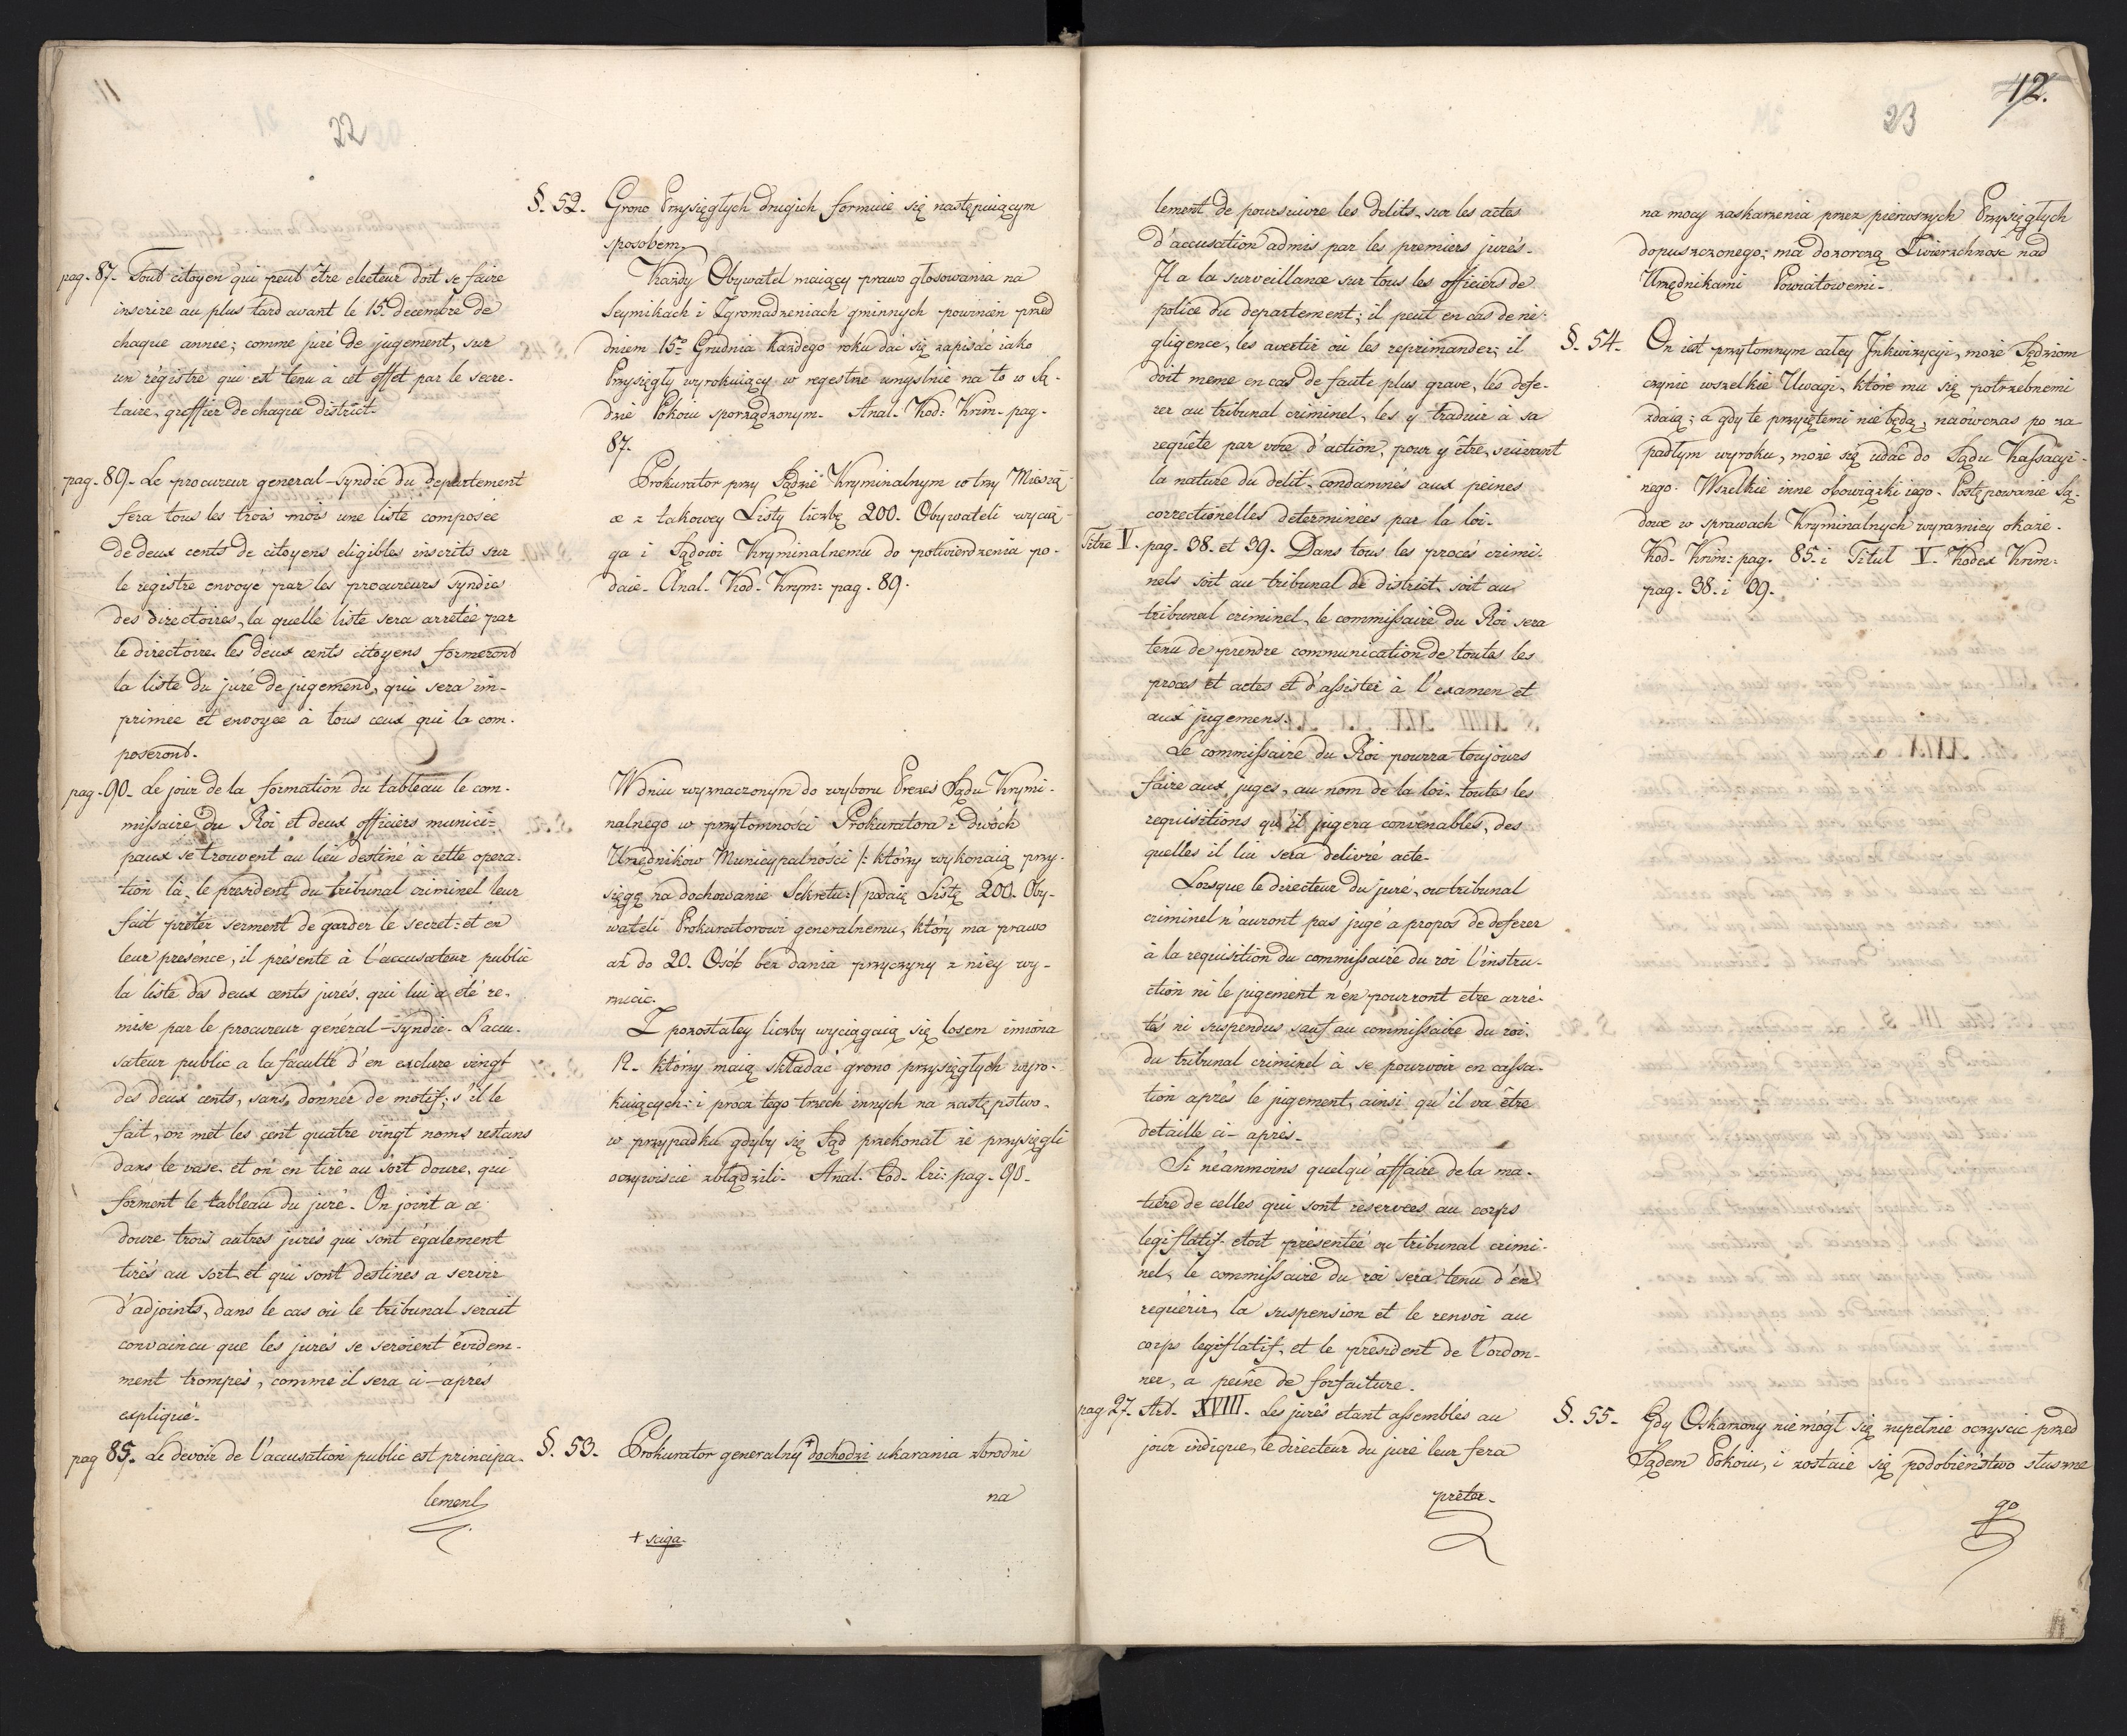 11
22
pag. 87. Tout citoyen qui peut être electeur doit se faire
inscrire au plus tard avant le 15. decembre de
chaque annee; comme juré de jugement, sur
un régistre qui est tenu à cet effet par le secre-
taire, greffier de chaque district.
pag. 89. Le procureur general-syndic du departement
fera tous les trois mois une liste composée
de deux cents de citoyens eligibles inscrits sur
le registre envoyé par les procureurs syndics
des directoires, la quelle liste sera arrêtée par
le directoire. les deux cents citoyens formerond
la liste du juré de jugemend, qui sera im-
primée et envoyée à tous ceux qui la com-
poserond.
pag. 90. Le jour de la formation du tableau le com-
missaire du Roi et deux officiers munici-
paux se trouvent au lieu destiné à cette opera-
tion là, le president du tribunal criminel leur
fait prêter serment de garder le secret: et en
leur présence, il présente à l'accusateur public
la liste des deux cents jurés, qui lui a été re-
mise par le procureur général-syndic. L'accu-
sateur public a la faculté d'en exclure vingt
des deux cents, sans donner de motif; s'il le
fait, on met les cent quatre vingt noms restans
dans le vase, et on en tire au sort douze, qui
forment le tableau du juré. On joint a ce
douze trois autres jurés qui sont également
tirés au sort, et qui sont destinés a servir
d'adjoints, dans le cas où le tribunal serait
convaincu que les jurés se seroient évidem-
ment trompés, comme il sera ci-après
expliqué.
pag 85. Le devoir de l'accusation public est principa-
lement
§. 52. Grono Przysięgłych drugich formuie się następuiącym
sposobem,
Każdy Obywatel maiący prawo głosowania na
Seymikach i Zgromadzeniach gminnych powinien przed
dniem 15º Grudnia każdego roku dać się zapisać iako
Przysięgły wyrokuiący w regestrze umyslnie na to w Są-
dzie Pokoiu sporządzonym. Anal. Kod: Krim. pag.
87.
Prokurator przy Sądzie Kryminalnym co trzy Miesią-
ce z takowey Listy liczbę 200. Obywateli wycią-
ga i Sądowi Kryminalnemu do potwierdzenia po-
daie. Anal. Kod. Krym: pag. 89.
W dniu wyznaczonym do wyboru Prezes Sądu Krymi-
nalnego w przytomności Prokuratora i dwóch
Urzędników Municypalności /: którzy wykonaią przy-
sięgę na dochowanie Sekretu:/ podaią Listę 200. Oby-
wateli Prokuratorowi generalnemu, który ma prawo
aż do 20. Osób bez dania przyczyny z niey wy-
rzucić.
Z pozostałey liczby wyciągaią się losem imiona
12. którzy maią składać grono przysięgłych wyro-
kuiących: i prócz tego trzech innych na zastępstwo
w przypadku gdyby się Sąd przekonał że przysięgli
oczywiście zbłądzili. Anal. Cod. Cri: pag. 90.
§. 53. Prokurator generalny + dochodzi ukarania zbrodni
na
+ sciga.
12.
23
lement de poursuivre les delits, sur les actes
d'accusation admis par les premiers jurés.
Il a la surveillance sur tous les officiers de
police du departement; il peut en cas de né-
gligence, les avertir ou les reprimander; il
doit meme en cas de faute plus grave, les defe-
rer au tribunal criminel, les y traduir à sa
requête par voie d'action, pour y être, suivant
la nature du delit, condamnés aux peines
correctionelles determinées par la loi.
Titre V. pag. 38. et 39. Dans tous les procés crimi-
nels soit au tribunal de district, soit au
tribunal criminel, le commissaire du Roi sera
tenu de prendre communication de toutes les
proces et actes et d'assister à l'examen et
aux jugemens.
Le commissaire du Roi pourra toujours
faire aux juges, au nom de la loi, toutes les
requisitions qu'il jugera convenables, des
quelles il lui sera delivré acte.
Lorsque le directeur du juré, ou tribunal
criminel n'auront pas jugé a propos de deferer
à la requisition du commissaire du roi l'instru-
ction ni le jugement n'en pourront etre arré-
tés ni suspendus sauf au commissaire du roi
du tribunal criminel à se pourvoir en cassa-
tion après le jugement, ainsi qu'il va être
detaille ci-après.
Si néanmoins quelqu'affaire de la ma-
tière de celles qui sont reservées au corps
legislatif etoit présentée au tribunal crimi-
nel, le commissaire du roi sera tenu d'en
requérir, la suspension et le renvoi au
corps legislatif, et le président de l'ordon-
ner, a peine de forfaiture.
pag 27. Art. XVIII. Les jurés etant assemblés au
jour indique, le directeur du juré leur fera
prêter.
na mocy zaskarzenia przez pierwszych Przysięgłych
dopuszczonego; ma dozorczą Zwierzchnosc nad
Urzędnikami Powiatowemi.
§. 54. On iest przytomnym całey Inkwizycyi, może Sędziom
czynic wszelkie Uwagi, które mu się potrzebnemi
zdaią; a gdy te przyiętemi nie będą, naówczas po za
padłym wyroku, może się udać do Sądu Kassacyi-
nego. Wszelkie inne obowiązki iego. Postępowanie Są-
dowe w sprawach Kryminalnych wyrazniey okaże.
Kod. Krim: pag. 85. i Titul V. Kodex Krim:
pag. 38. i 39.
§. 55. Gdy Oskarzony nie mógł się zupełnie oczyscic przed
Sądem Pokoiu, i zostaie się podobieństwo słuszne
go